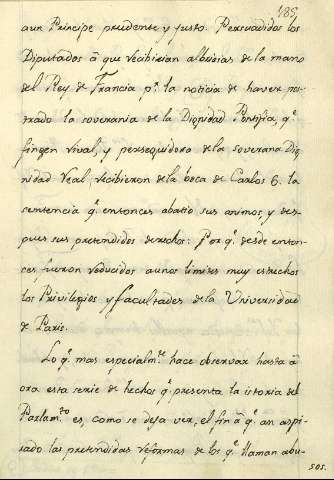 185
aun Principe prudente y justo. Persuadidos los
Diputados à que recibirian albrisias de la mano
del Rey de Francia pr. la noticia de haver pos
trado la soverania de la Dignidad Pontifia, qe.
fingen rival, y perseguidora de la soverana Dig
nidad Real recibieron de la boca de Carlos 6. la
sentencia qe. entonces abatio sus animos, y des-
pues sus pretendidos derechos: Por qe. desde enton-
ces fueron reducidos a unos limites muy estrechos
los Privilegios y facultades de la Universidad
de Paris.
Lo qe. mas especialmte. hace observar hasta à
ora esta serie de hechos qe. presenta la istoria del
Parlamto. es, como se deja ver, el fin à qe. an aspi-
rado las pretendidas reformas de los qe. llaman abu-
sos.